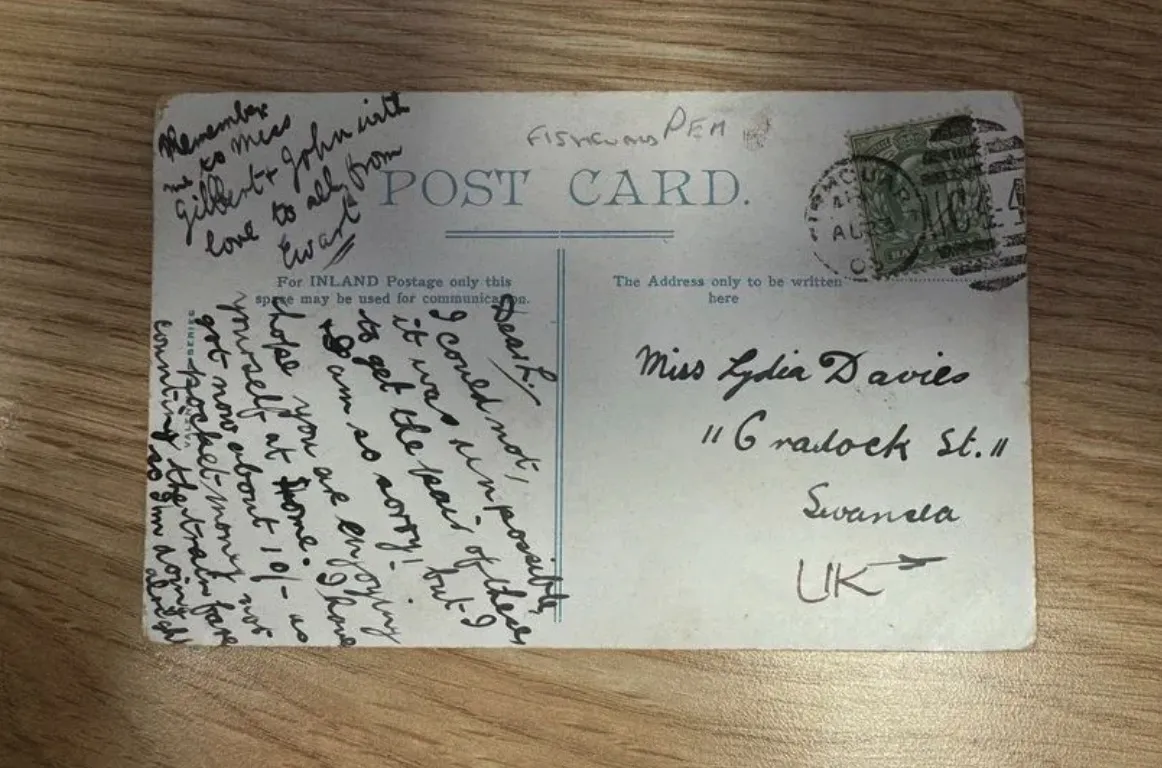 FISHGUARD PEM
POST CARD.
For INLAND Postage only this
space may be used for communication.
The Address only to be written
here
Dear L/
I could not,
it was impossible,
to get the pair of these
& I am so sorry! but I
hope you are enjoying
yourself at Home. I have
got now about 10/- as
pocket-money not
counting the train fare
so I'm doing alright
Remember
me to Miss
Gilbert & John with
love to all, from
Ewart
Miss Lydia Davies
"Cradock St."
Swansea
UK
AU 3